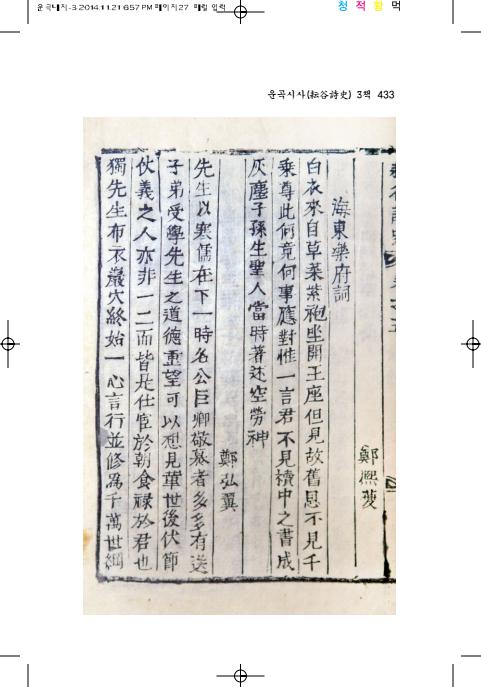 운곡대지-3 2014.11.21 6:57 PM 페이지27
청 적 황 먹
운곡시사(耘谷詩史) 3책 433
海東樂府詞
鄭熙夔
白衣來自草萊紫袍坐開王座但見故舊恩不見千
乘尊此何竟何事應對惟一言君不見櫝中之書成
灰塵子孫生聖人當時著述空勞神
鄭弘翼
先生以寒儒在下一時名公巨卿敬慕者多多有送
子弟受學先生之道德重望可以想見革世後伏節
伏義之人亦非一二而皆是仕宦於朝食祿於君也
獨先生布衣巖穴終始一心言行並修爲千萬世綱